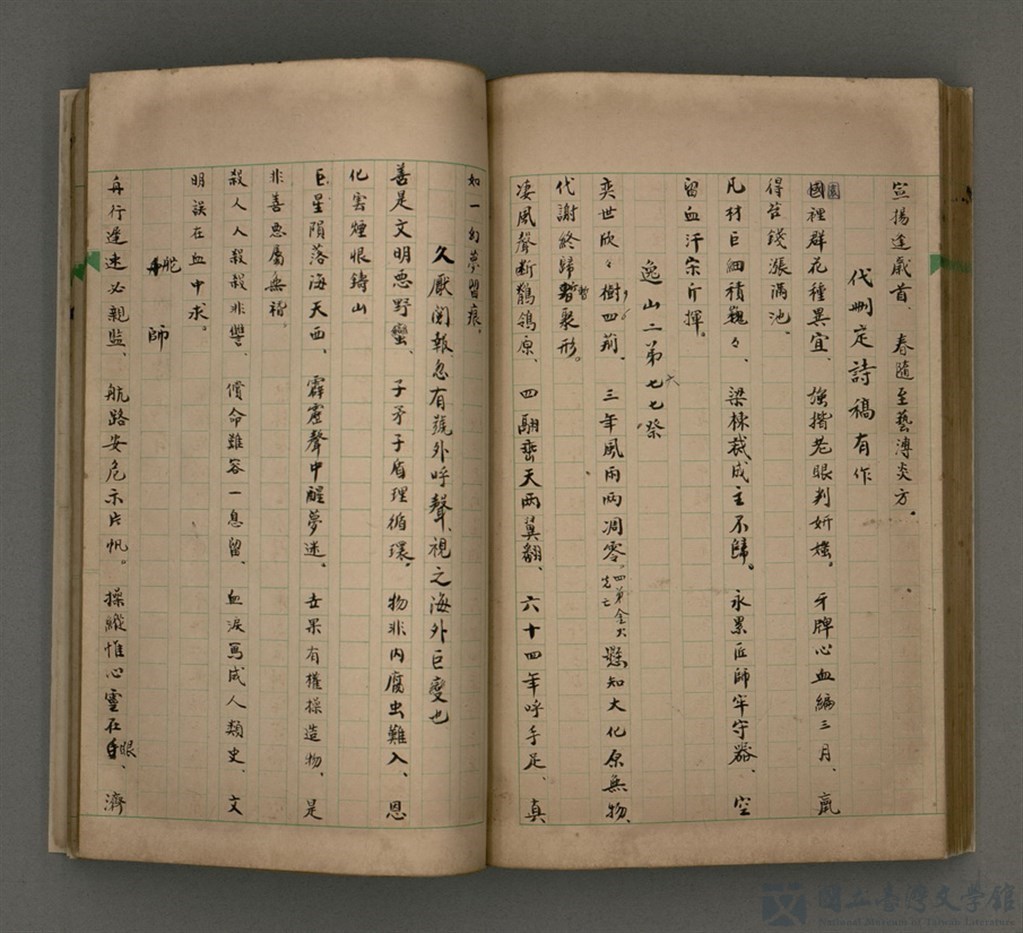 宣揚逢歲首、春隨至藝溥炎方。
代刪定詩稿有作
國園裡群花種異宜、強揩老眼判妍媸。牙牌心血編三月、贏
得苔錢漲滿池、
凡材巨細積巍々、梁棟裁成主不歸。永累匠師牢守器、空
留血汗宗斤揮。
逸山二弟七七六祭
奕世欣々樹四荊、三年風雨兩凋零。四弟金火先亡懸知大化原無物、
代謝終歸暫聚形。
淒風聲斷鶺鴒原、四翮巒天兩翼翻、六十四年呼手足、真
如一幻夢留痕。
久厭閱報忽有號外呼聲、視之海外巨變也
善是文明惡野蠻、子矛子盾理循環。物非內腐虫難入、恩
化雲煙恨鑄山
巨星隕落海天西、霹靂聲中醒夢迷。去果有權操造物、是
非善惡屬無稽。
殺人人殺殺非讐、償命雖容一息留、血淚寫成人類史、文
明誤在血中求。
舵師
舟行遲速必親監、航路安危示片帆。操縱惟心靈在眼、濟
國立臺灣文學館
National Museum of Taiwan Literature